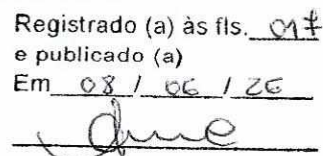 Registrado (a) às fls. 017
e publicado (a)
Em 08 / 06 / 26